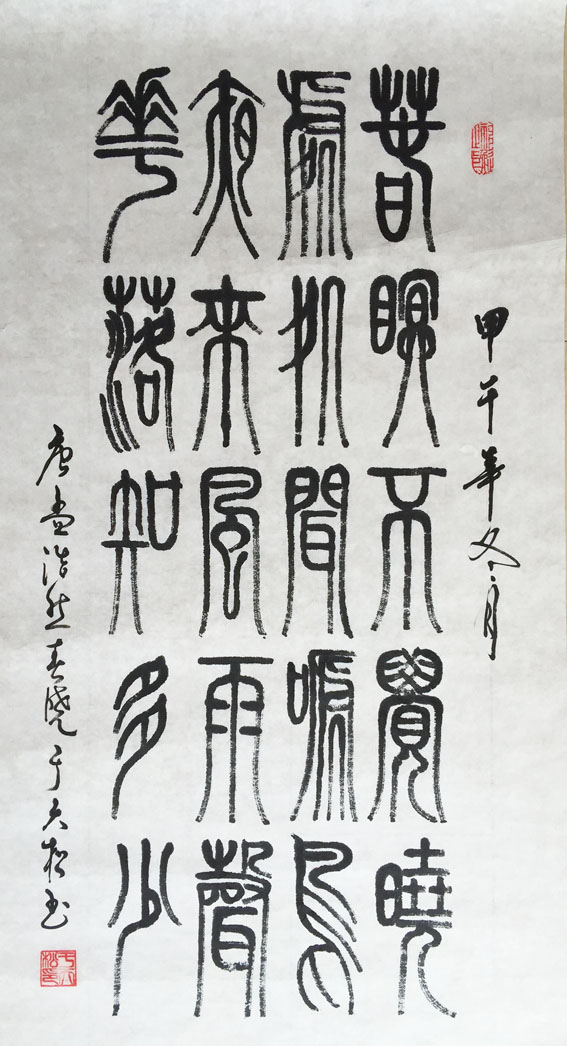 甲午年冬月
春眠不覺曉
處処聞嗁鳥
夜來風雨聲
華落知多少
唐孟浩然春晓于松书